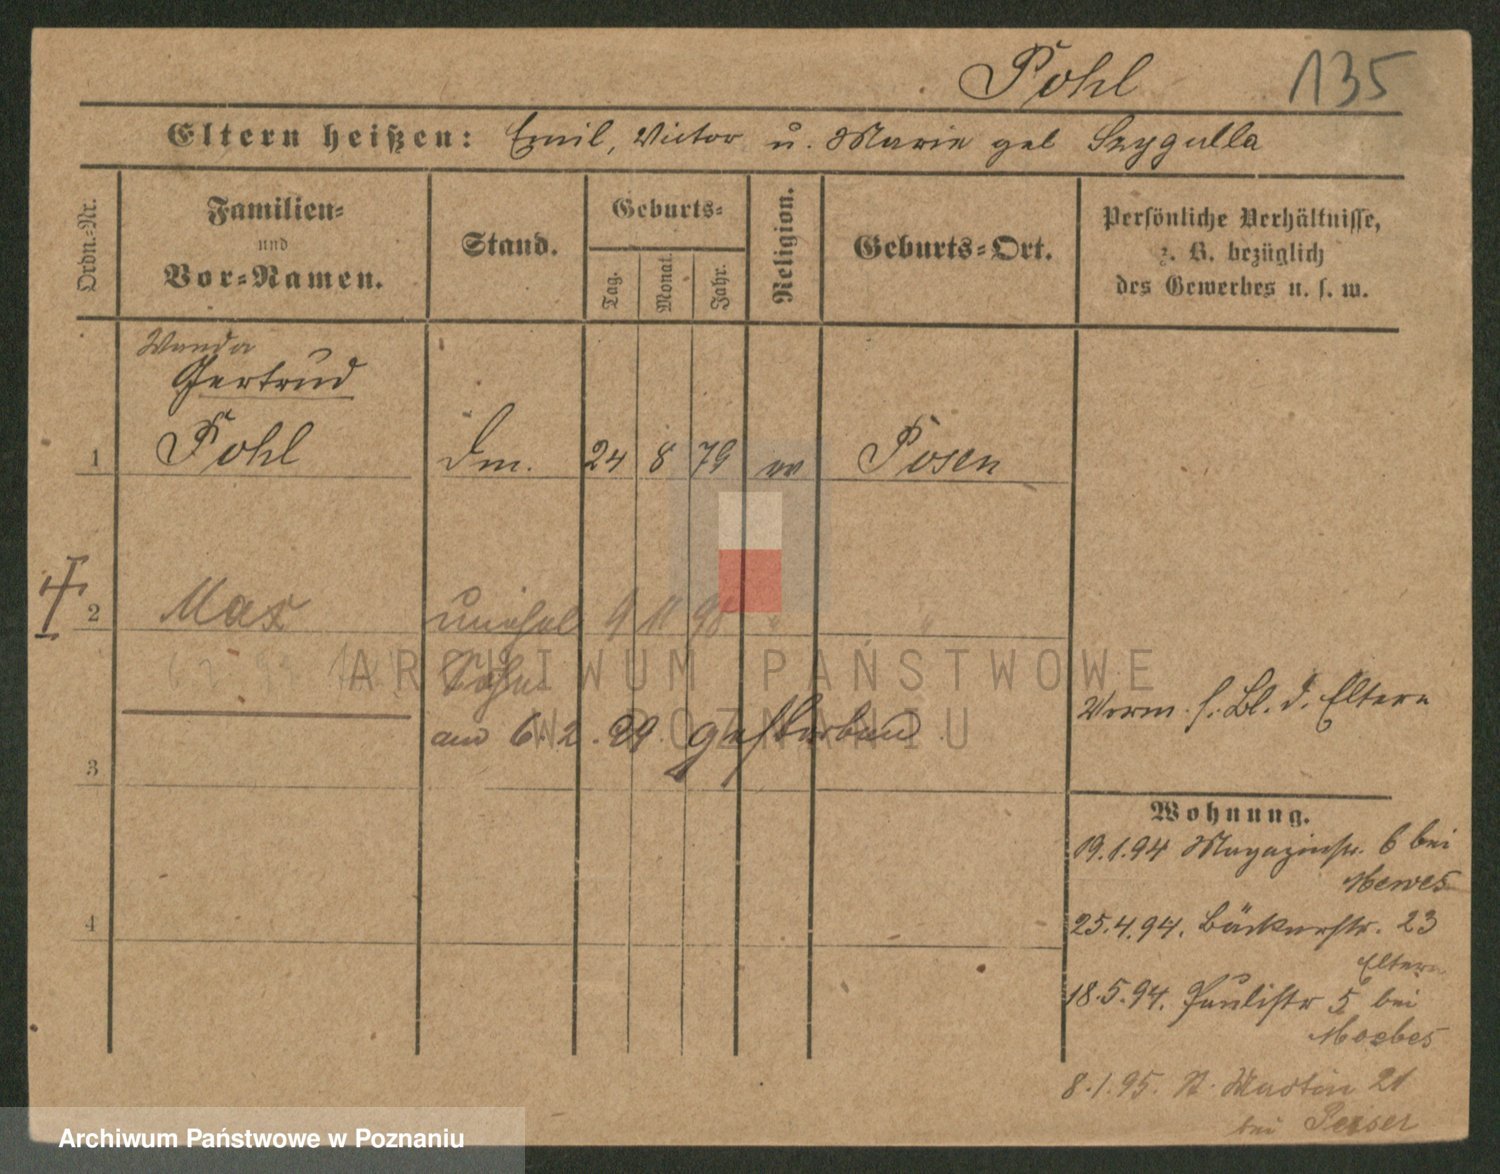 Pohl 135
Eltern heißen: Emil, Victor u. Marie geb Szygulla
Ordn.-Nr.
Familien-
und
Vor-Namen.
Stand.
Geburts-
Tag.
Monat.
Jahr.
Religion.
Geburts-Ort.
Persönliche Verhältnisse,
z. B. bezüglich
des Gewerbes u. s. w.
Wanda
Gertrud
1 Pohl Dm. 24 8 79 ev Posen
2 Max unehel 9 11 98 " "
Sohn
ARCHIWUM PAŃSTWOWE
W POZNANIU
am 6. 2. 99 gestorben
Verm. s. Bl. d. Eltern
3
Wohnung.
19.1.94 Magazinstr. 6 bei
Mewes
4
25.4.94. Bäckerstr. 23
Eltern
18.5.94. Paulistr 5 bei
8.1.95. St. Martin 21
bei
Archiwum Państwowe w Poznaniu